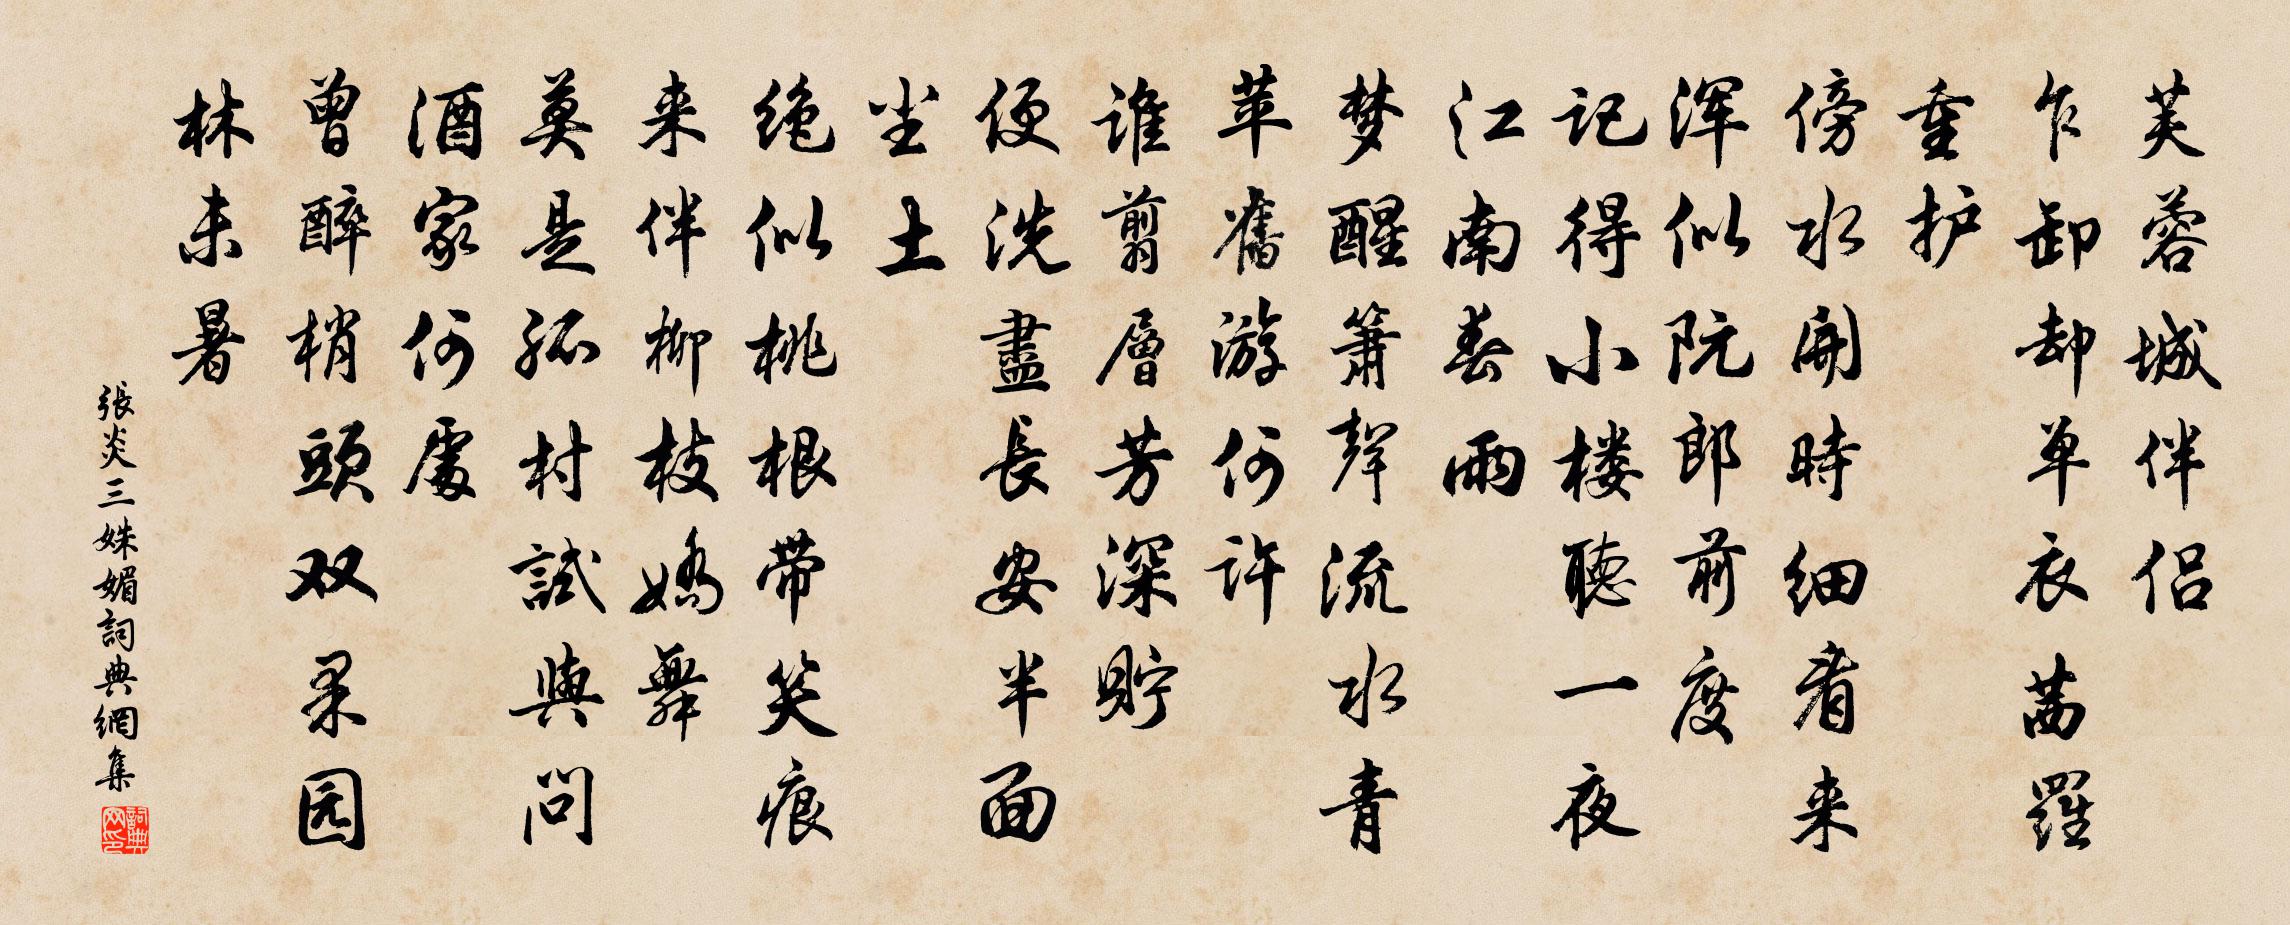 芙蓉城伴侣
乍卸却单衣茜羅
重护
傍水開時细看来
浑似阮郎前度
记得小楼聽一夜
江南春雨
梦醒箫聲流水青
苹舊游何许
谁剪層芳深貯
便洗盡長安半面
尘土
绝似桃根带笑痕
来伴柳枝嬌舞
莫是孤村試與問
酒家何處
曾醉梢頭双果园
林未暑
張炎三姝媚詞典網集
詞典网印